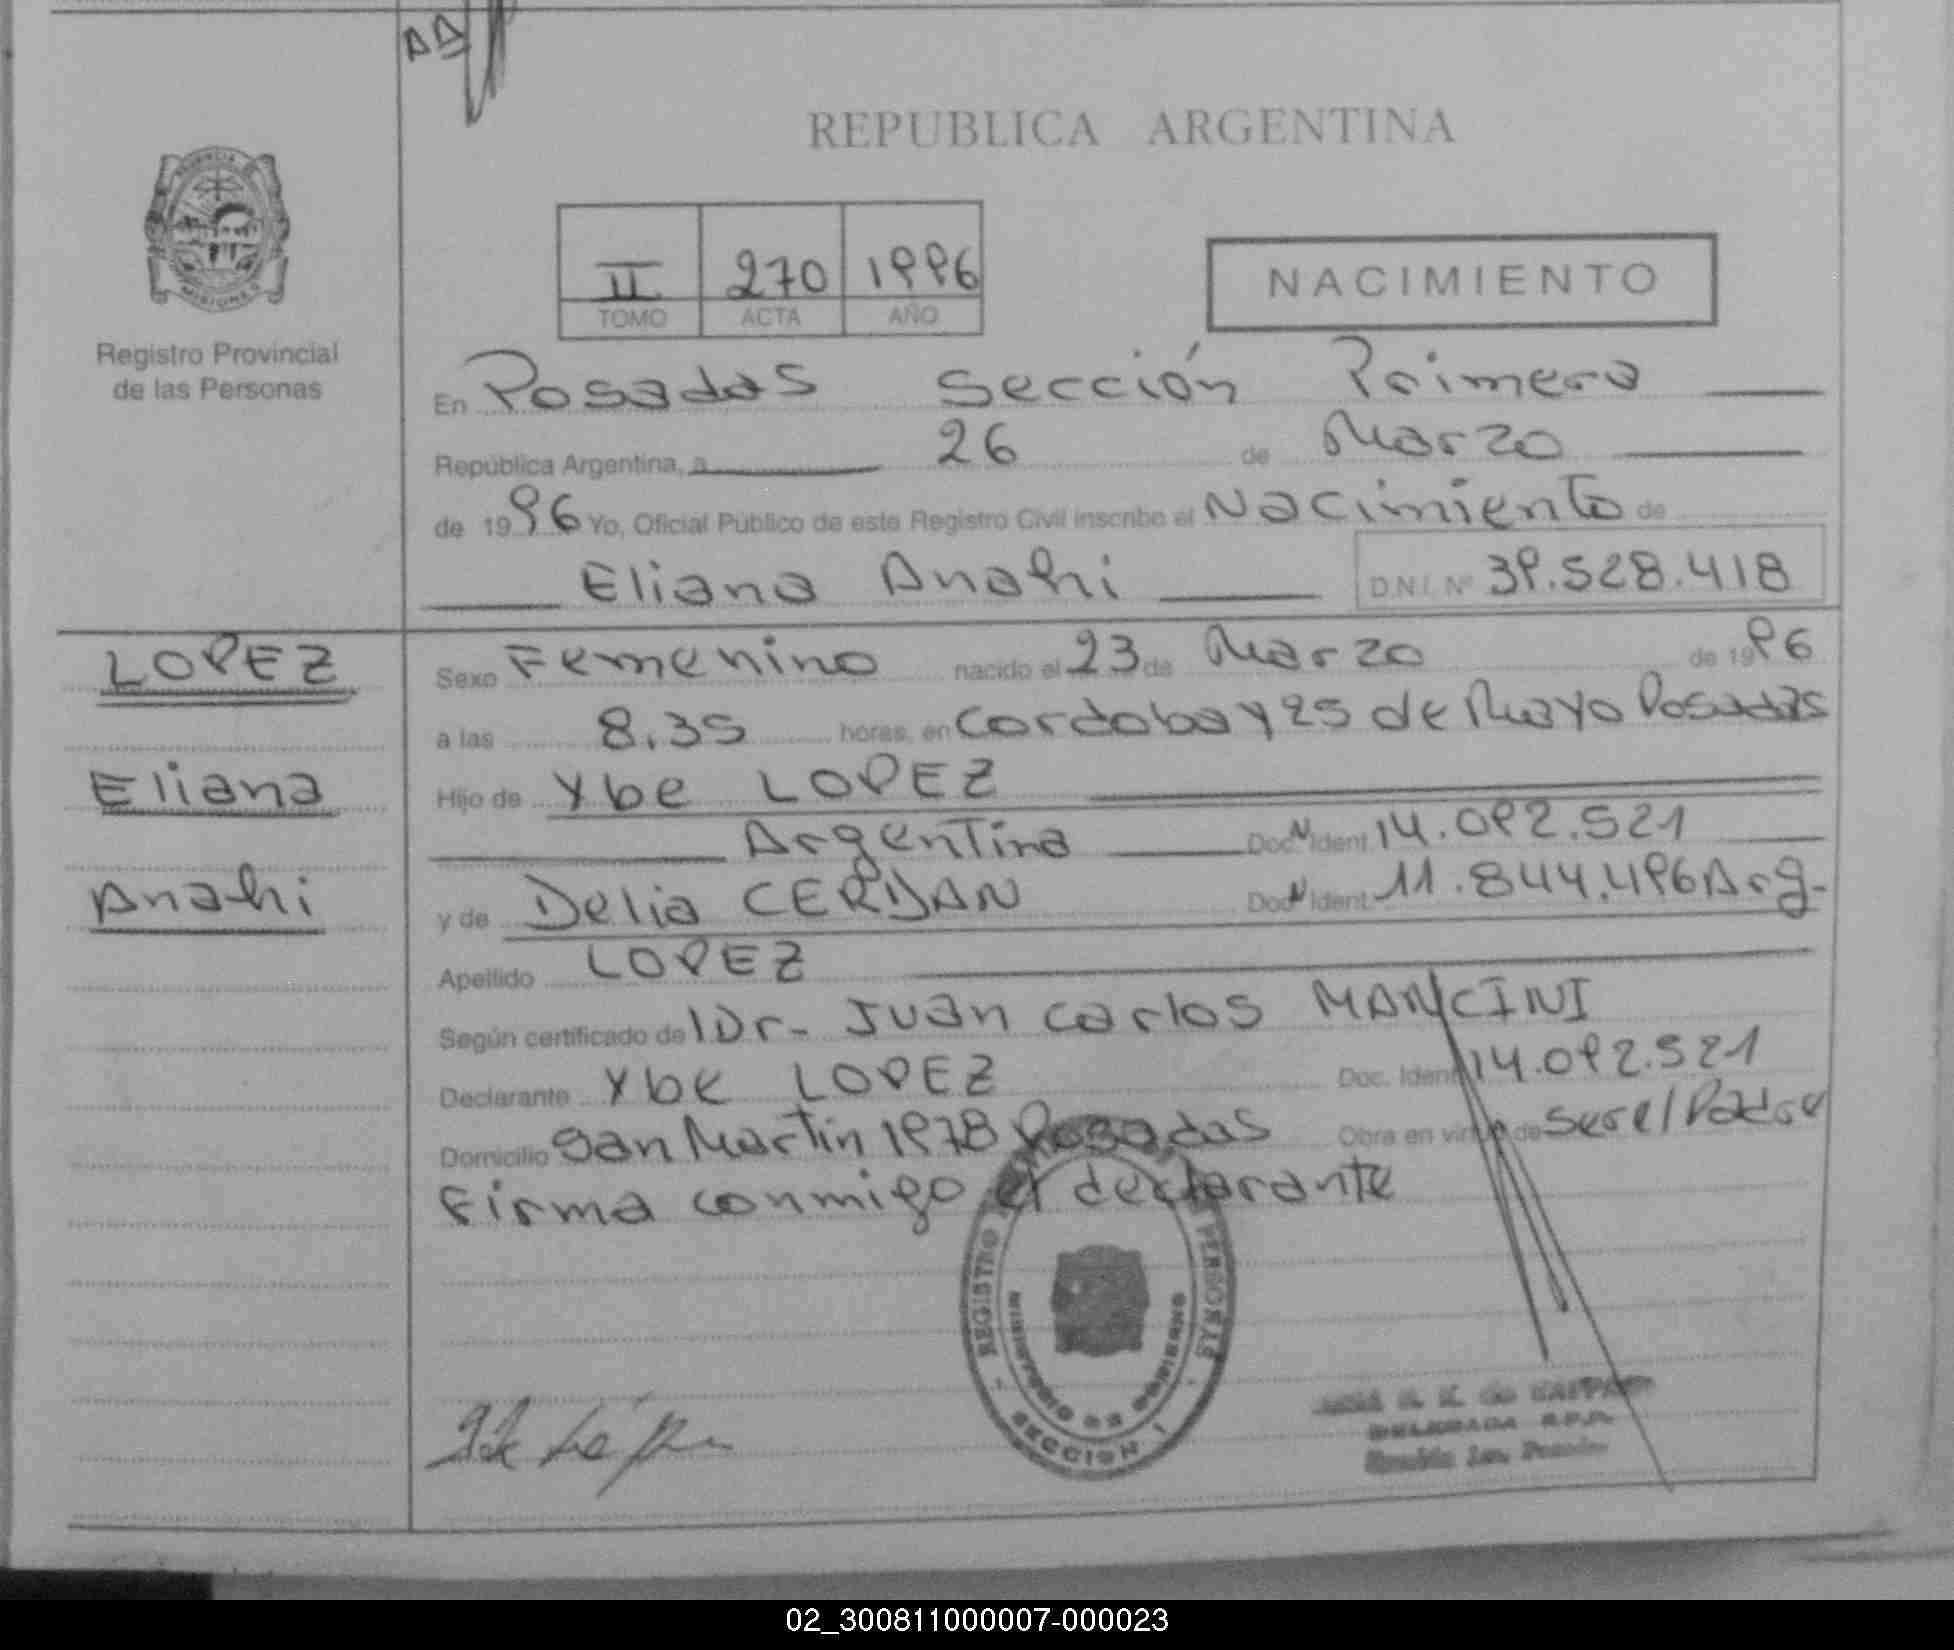 AA
REPUBLICA ARGENTINA
PROVINCIA DE
MISIONES
Registro Provincial
de las Personas
II 270 1996
TOMO ACTA AÑO
NACIMIENTO
En Posadas Sección Primera
República Argentina, a 26 de Marzo
de 1996 Yo, Oficial Público de este Registro Civil inscribo el Nacimiento de
Eliana Anahi D.N.I. Nº 39.528.418
LOPEZ
Eliana
Anahi
Sexo Femenino nacido el 23 de Marzo de 1996
a las 8.35 horas, en Cordoba y 25 de Mayo Posadas
Hijo de Ybe LOPEZ
Argentina Doc N Ident 14.092.521
y de Delia CERDAN Doc N Ident 11.844.496 Arg-
Apellido LOPEZ
Según certificado de l Dr- Juan Carlos MANCINI
Declarante Ybe LOPEZ Doc. Ident 14.092.521
Domicilio San Martin 1978 Posadas Obra en virtud de ser el Padre
Firma conmigo el declarante
REGISTRO PERSONAS
MINISTERIO DE GOBIERNO
SECCION I
DELEGADA R.P.P.
02_300811000007-000023